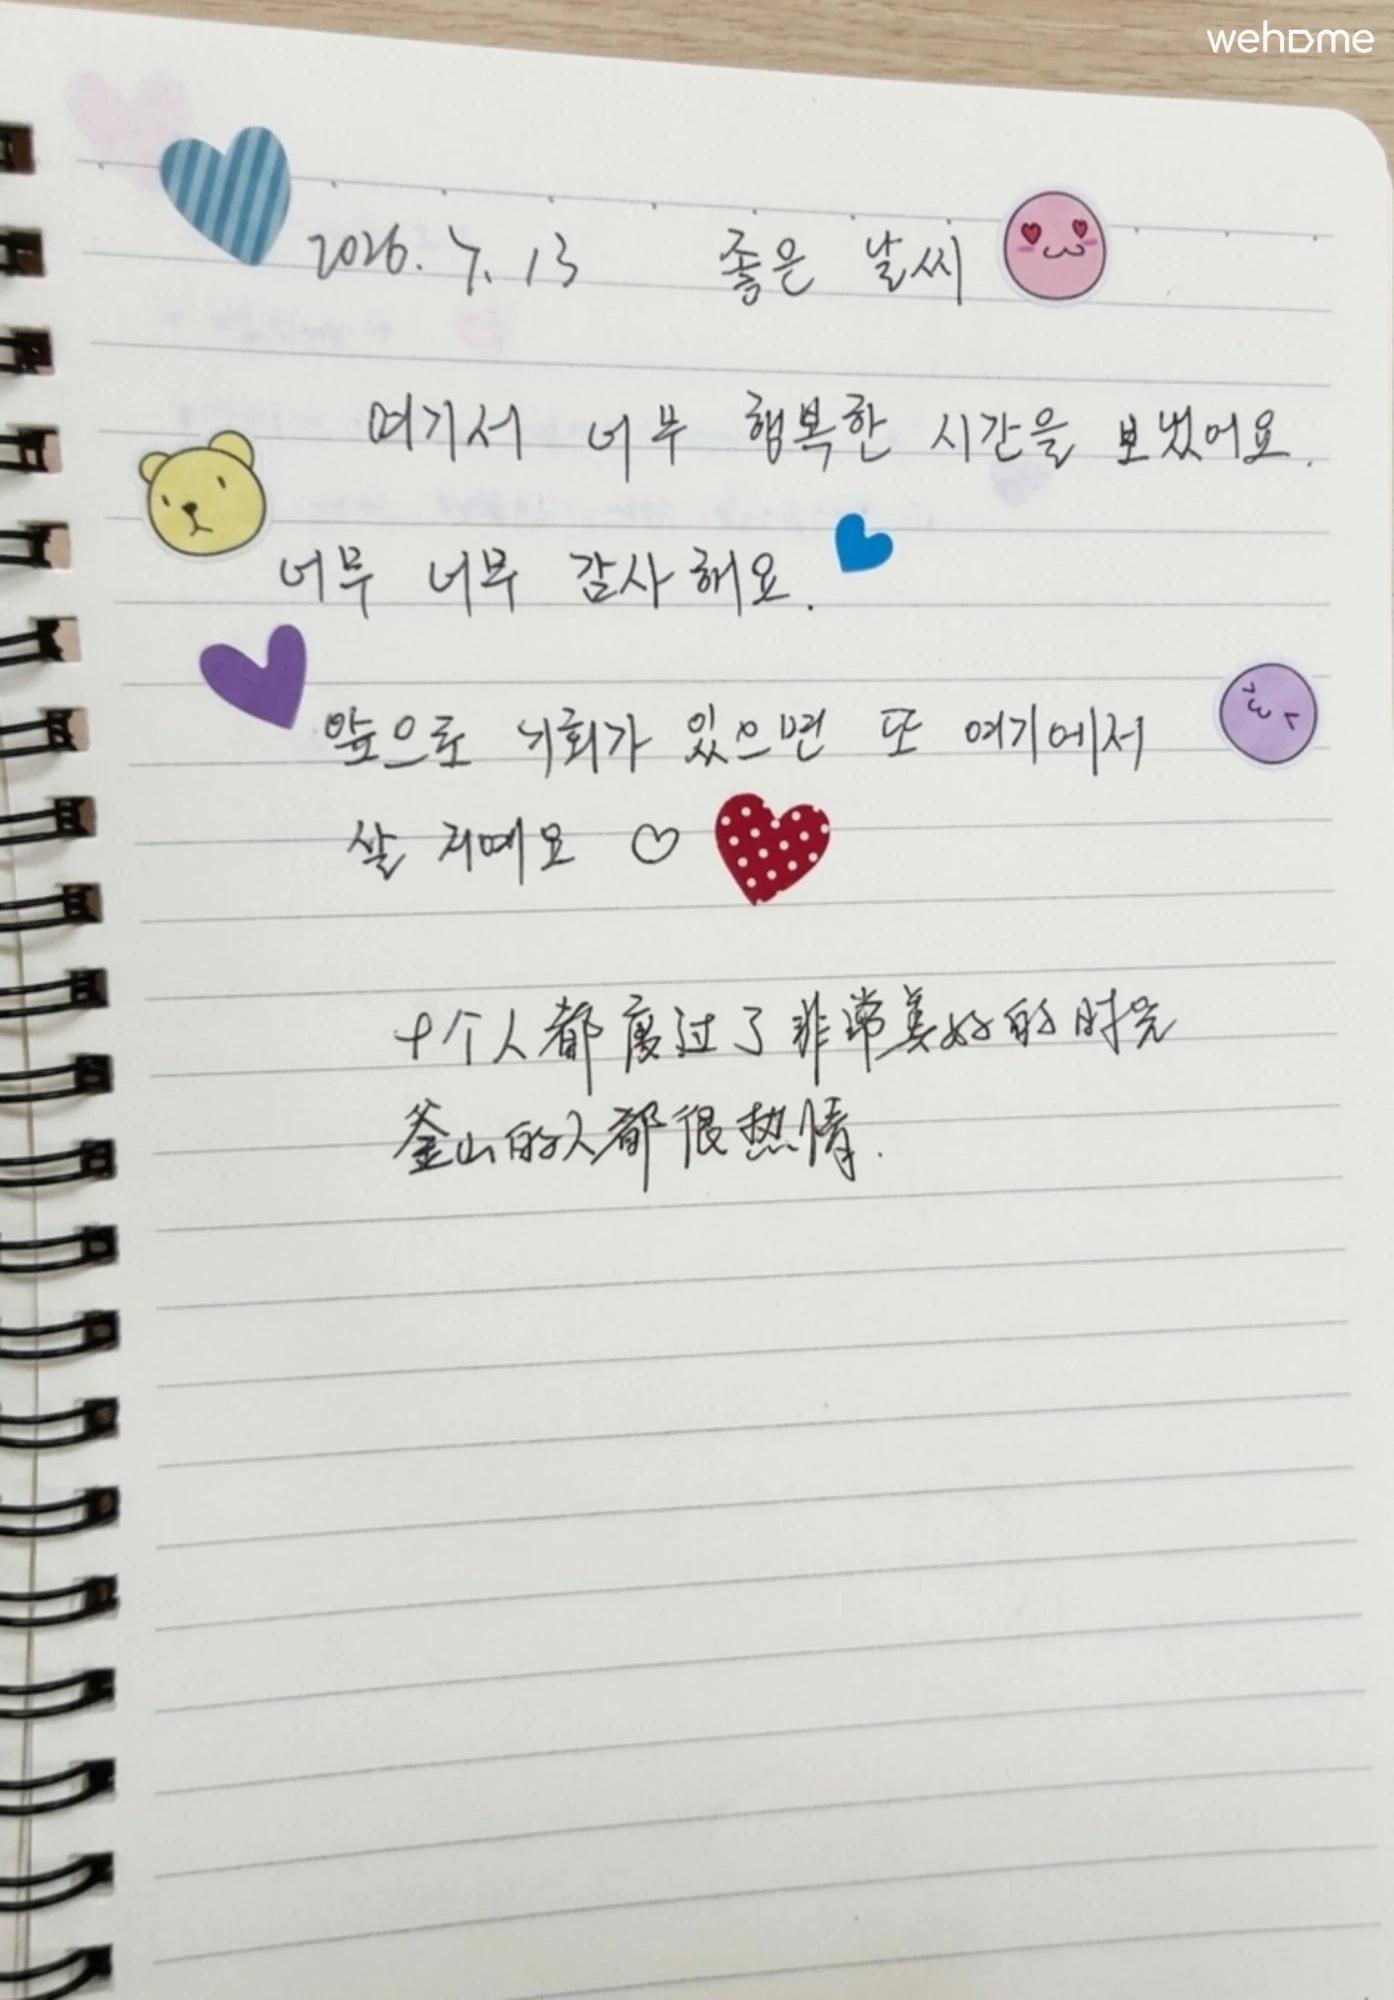 wehome
2026.7.13 좋은 날씨
여기서 너무 행복한 시간을 보냈어요.
너무 너무 감사해요.
앞으로 기회가 있으면 또 여기에서
살 거예요
十个人都度过了非常美好的时光
釜山的人都很热情.